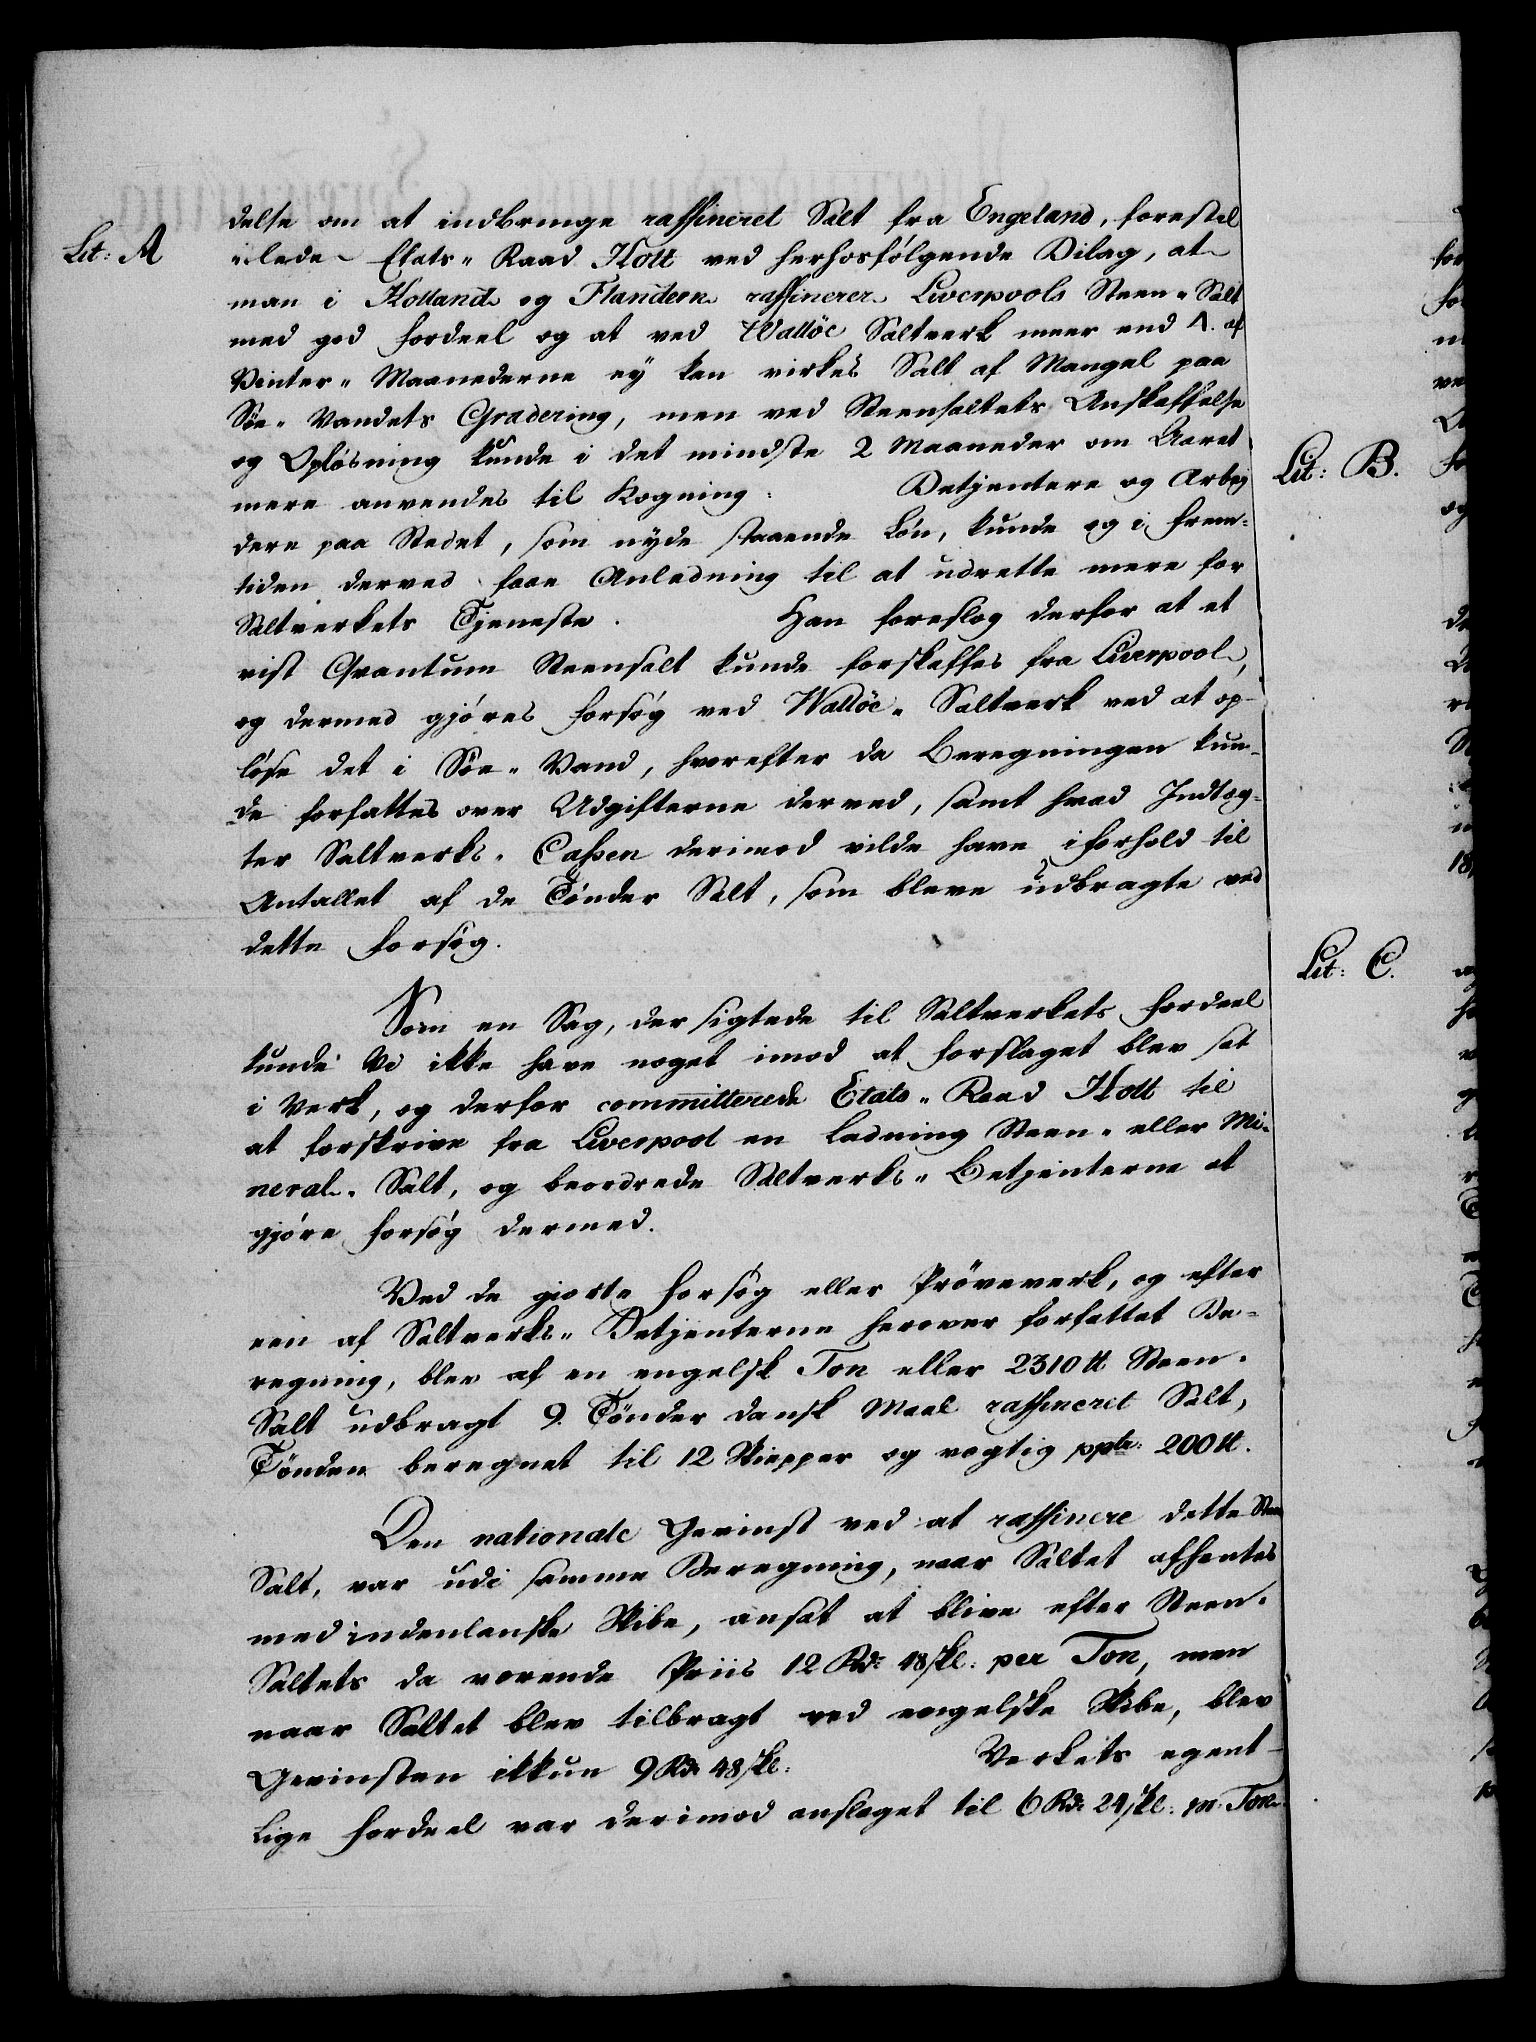 delse om at indbringe raffineret Salt fra Engeland, forestil
Lit: A
lede Etats-Raad Holt ved herhosfølgende Bilag, at
man i Holland og Flandern raffinerer Liverpools Steen-Salt
med god Fordeel og at ved Walløe Saltverk meer end 1. af
Vinter-Maanederne ey kan virkes Salt af Mangel paa
Søe-Vandets Gradering, men ved Steensaltets Anskaffelse
og Opløsning kunde i det mindste 2 Maaneder om Aaret
mere anvendes til Kogning. Betjentere og Arbej
dere paa Stedet, som nyde staaende Løn, kunde og i Frem-
tiden derved faae Anledning til at udrette mere for
Saltverkets Tjeneste. Han foreslog derfor at et
vist Qvantum Steensalt kunde forskaffes fra Liverpool,
og dermed gjøres Forsøg ved Walløe-Saltverk ved at op-
løse det i Søe-Vand, hvorefter da Beregningen kun-
de forfattes over Udgifterne derved, samt hvad Indtæg-
ter Saltverks-Cassen derimod vilde have i forhold til
Antallet af de Tønder Salt, som bleve udbragte ved
dette Forsøg.
Som en Sag, der sigtede til Saltverkets Fordeel
kunde Vi ikke have noget imod at Forslaget blev sat
i Verk, og derfor committerede Etats-Raad Holt til
at forskrive fra Liverpool en Ladning Steen- eller Mi-
neral-Salt, og beordrede Saltverks-Betjenterne at
gjøre Forsøg dermed.
Ved de giorte Forsøg eller Prøveverk, og efter
een af Saltverks-Betjenterne herover forfattet Be-
regning, blev af en engelsk Ton eller 2310 ℔ Steen-
Salt udbragt 9. Tønder dansk Maal raffineret Salt,
Tønden beregnet til 12 Skiepper og vægtig pptr. 200 ℔.
Den nationale Gevinst ved at raffinere dette Steen
Salt, var udi samme Beregning, naar Saltet afhentes
med indenlanske Skibe, ansat at blive efter Steen-
Saltets da værende Priis 12 Rd. 48 skl. per Ton, men
naar Saltet blev tilbragt ved engelske Skibe, blev
Gevinsten ikkun 9 Rd. 48 skl. Verkets egent-
lige Fordeel var derimod anslaget til 6 Rd. 24 skl. pr. Ton.
Lit: B.
Lit: C.